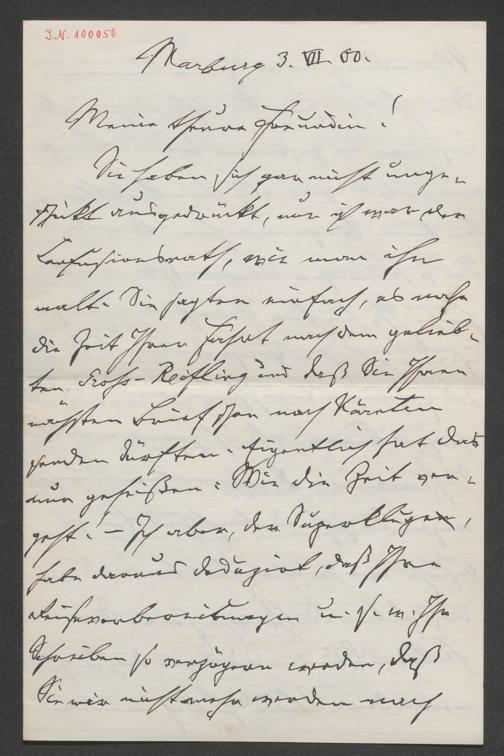 J.N. 100050
Marburg 3. VII. 00.
Meine theure Freundin!
Sie haben sich gar nicht unge-
schickt ausgedrückt, nur ich war der
Confusionsrath, wie man ihn
malt. Sie sagten einfach, es nahe
die Zeit Ihrer Fahrt nach dem gelieb-
ten Groß-Reifling und daß Sie Ihren
nächsten Brief schon nach Kärnten
senden dürften. Eigentlich hat das
nun geheißen: Wie die Zeit ver-
geht! – Ich aber, der Superkluge,
habe daraus deduzirt, daß Ihre
Reisevorbereitungen u. s. w. Ihr
Schreiben so verzögern werden, daß
Sie mir nicht mehr werden nach